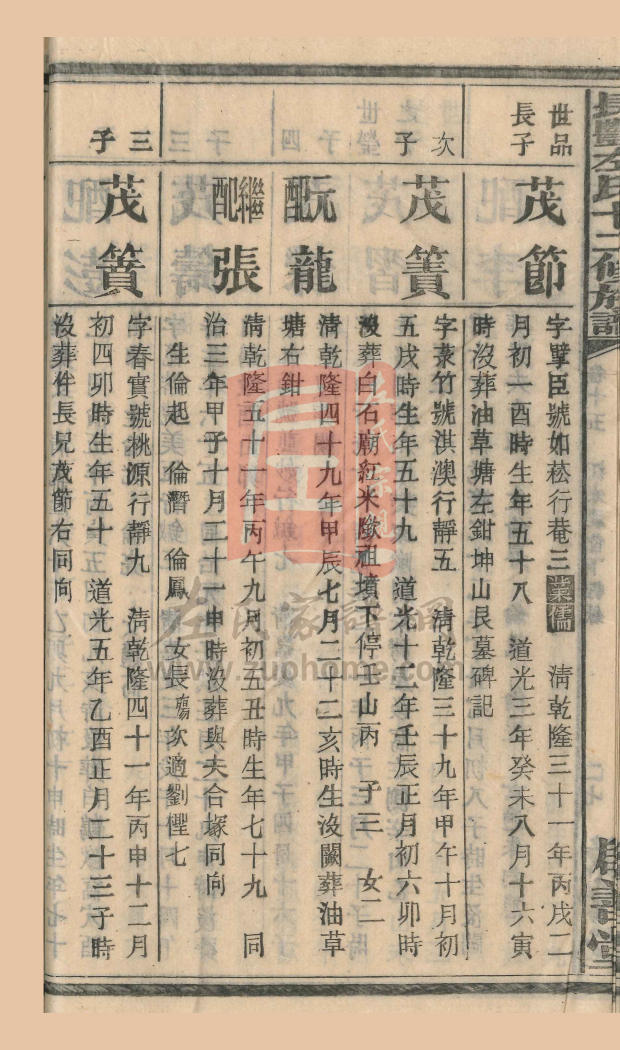 長醴左氏十二修族譜
世品長子
茂節
字擘臣號如菘行菴三業儒 清乾隆三十一年丙戌二
月初一酉時生年五十八 道光三年癸未八月十六寅
時没葬油草塘左鉗坤山艮墓碑記
次子
茂簀
字菉竹號淇澳行靜五 清乾隆三十九年甲午十月初
五戌時生年五十九 道光十二年壬辰正月初六卯時
没葬白石廟紅米墩祖墳下停壬山丙 子三 女二
配阮龍
清乾隆四十九年甲辰七月二十二亥時生没闕葬油草
塘右鉗
繼配張
清乾隆五十一年丙午九月初五丑時生年七十九 同
治三年甲子十月二十一申時没葬與夫合塚同向
生倫起 倫潛 倫鳳 女長殤次適劉悝七
三子
茂蕡
字春實號桃源行靜九 清乾隆四十一年丙申十二月
初四卯時生年五十 道光五年乙酉正月二十三子時
没葬伴長兄茂節右同向
左氏宗親
左氏家譜網
www.zuohome.com